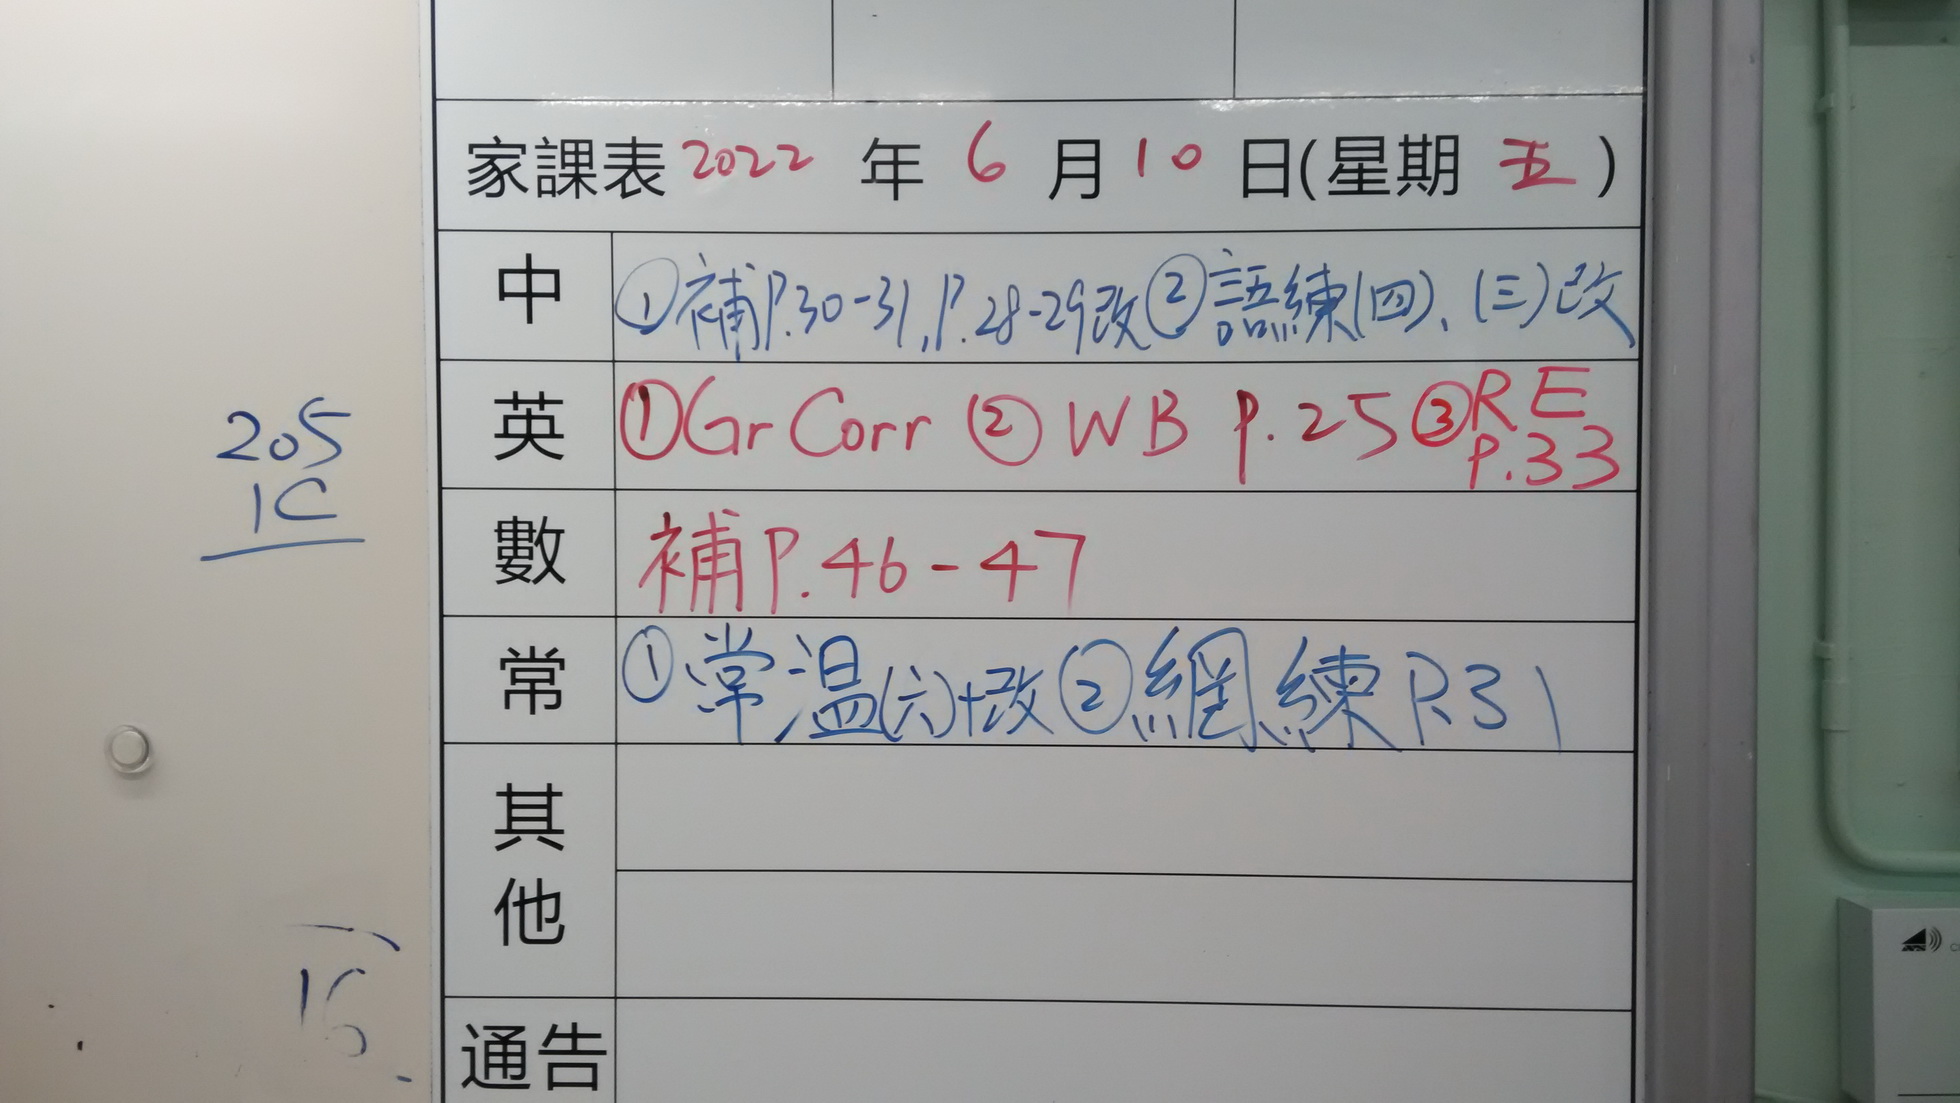 家課表 2022 年 6 月 10 日(星期 五)
中 ①補P.30-31, P.28-29改 ②語練(四)、(三)改
英 ①Gr Corr ② WB p.25 ③RE p.33
數 補P.46-47
常 ①常温(六)+改 ②網練P.31
其他
通告
205
1C